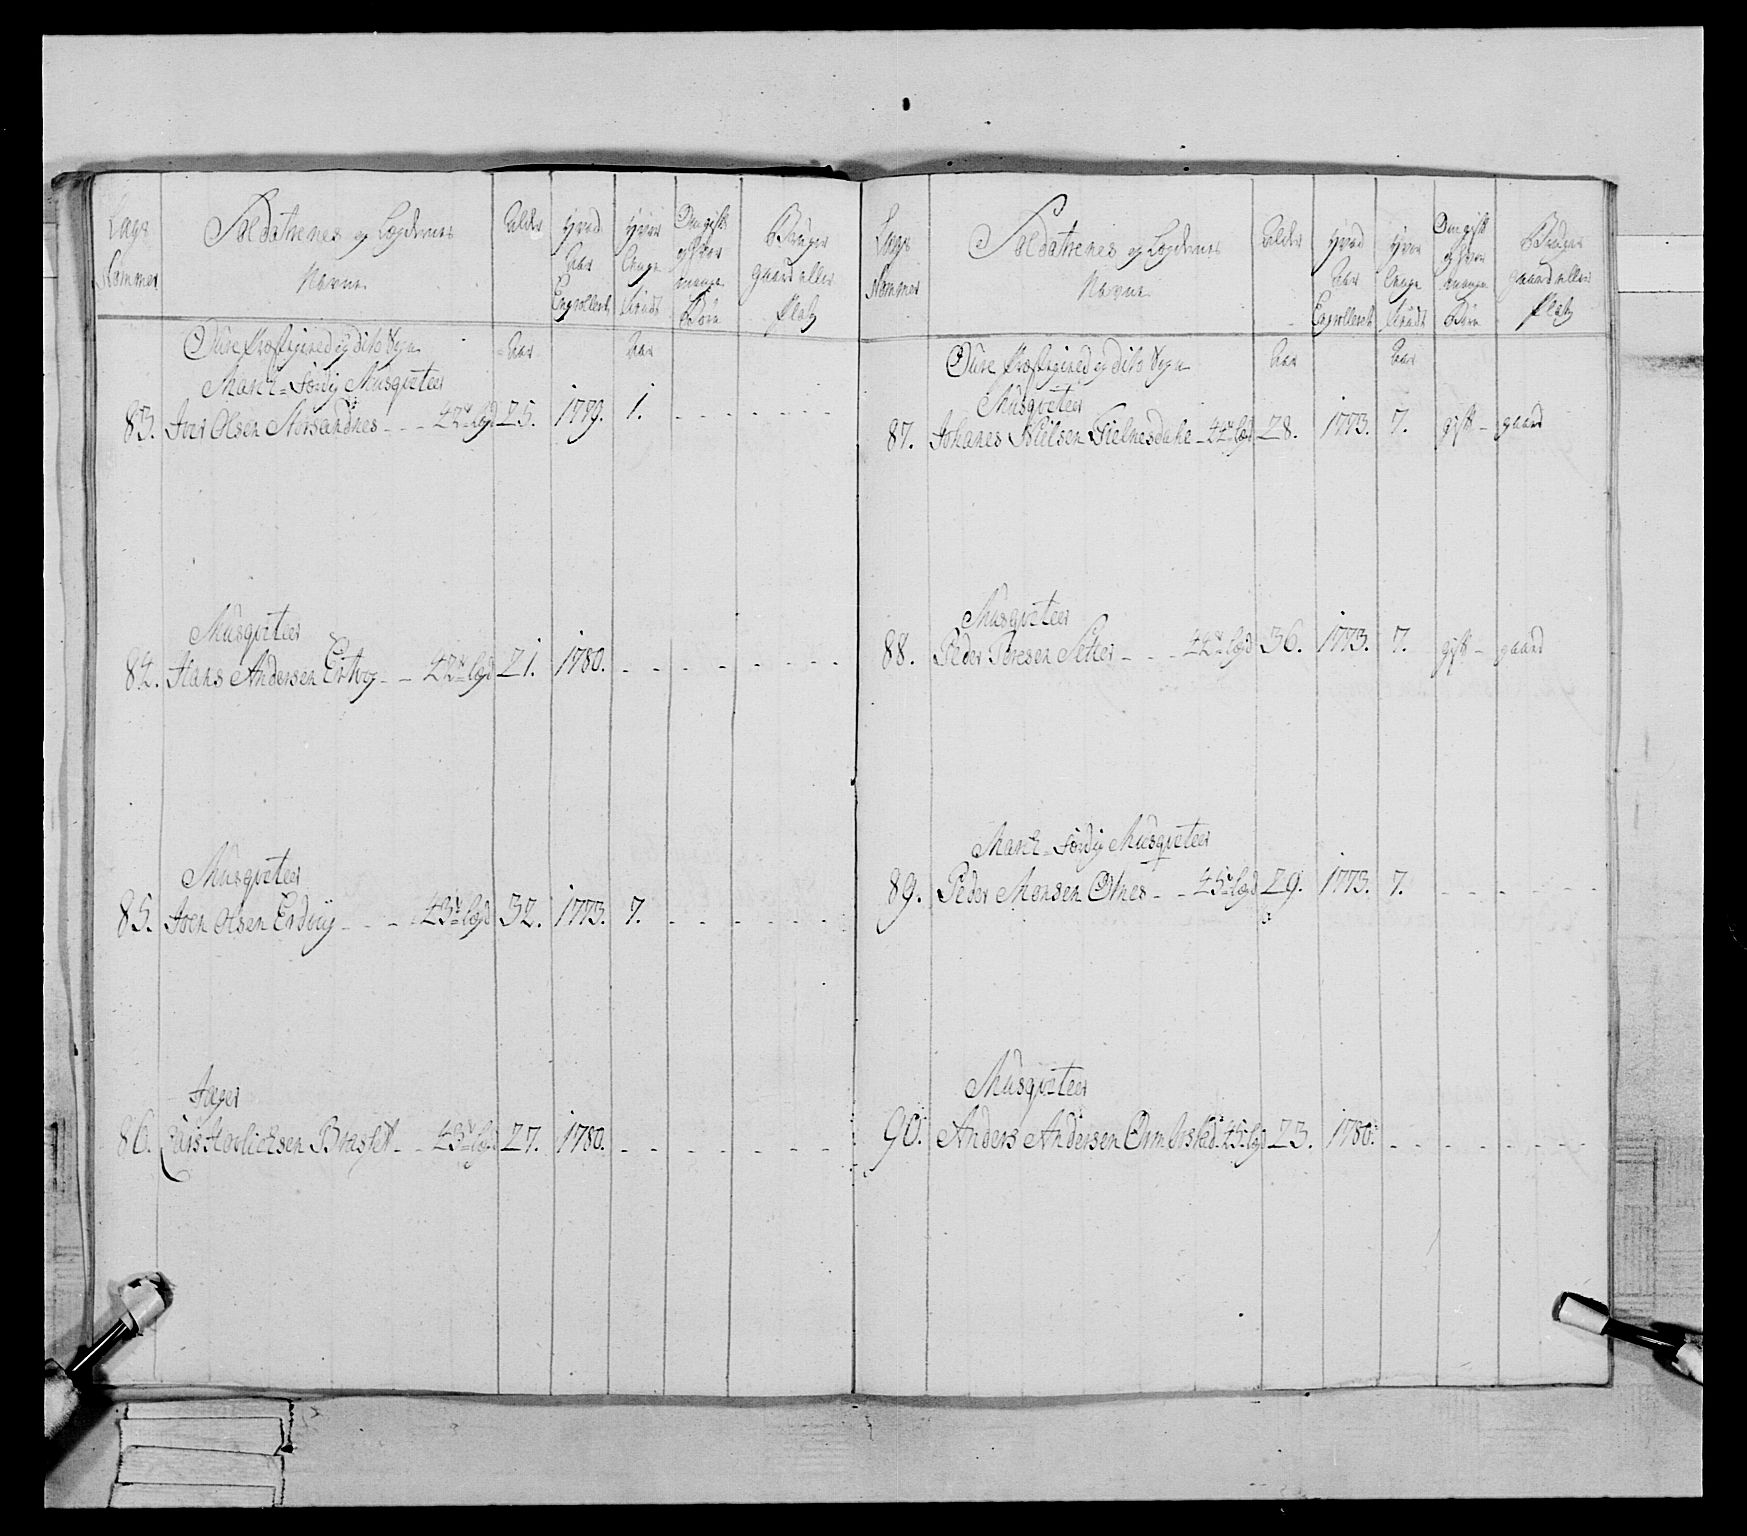 Lægs Nommer | Soldaternes og Lægdernes Navne | Alder | Hvad Aar Enrolleret | Hvor længe tient | Om gift og hvor mange Børn | Bruger gaard eller Platz
Øure Præstegield og dito Sogn | Aar | Aar
March-færdig Musqveteer
83. Iver Olsen Storsandnes - - - 42de lægd 25. 1779. 1. - - - - - - -
Musqveteer
84. Hans Andersen Ertvog - - 42de lægd 21. 1780. - - - - - - - -
Musqveteer
85. Iven Olsen Erdvig - - - 43de lægd 32. 1773. 7. - - - - - -
Jæger
86. Lars 43de lægd 27. 1780. - - - - - - -
Lægs Nommer | Soldaternes og Lægdernes Navne | Alder | Hvad Aar Enrolleret | Hvor længe tient | Om gift og hvor mange Børn | Bruger gaard eller Platz
Øure Præstegield og dito Sogn | Aar | Aar
Musqveteer
87. Johanes Nielsen - 44de læd 28. 1773. 7. gift - gaard
Musqveteer
88. Peder Peresen Setter - - - 44de lægd 36. 1773. 7. gift - gaard
March-færdig Musqveteer
89. Peder Monsen Otnes - - 45de lægd 29. 1773. 7. - - - - - -
Musqveteer
90. Anders Andersen 45de lægd 23. 1780. - - - - - - -